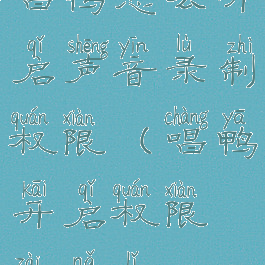 qǐ shēng yīn lù zhì
启声音录制
quán xiàn chàng yā
权限(唱鸭
kāi qǐ quán xiàn
开启权限
zài nǎ lǐ